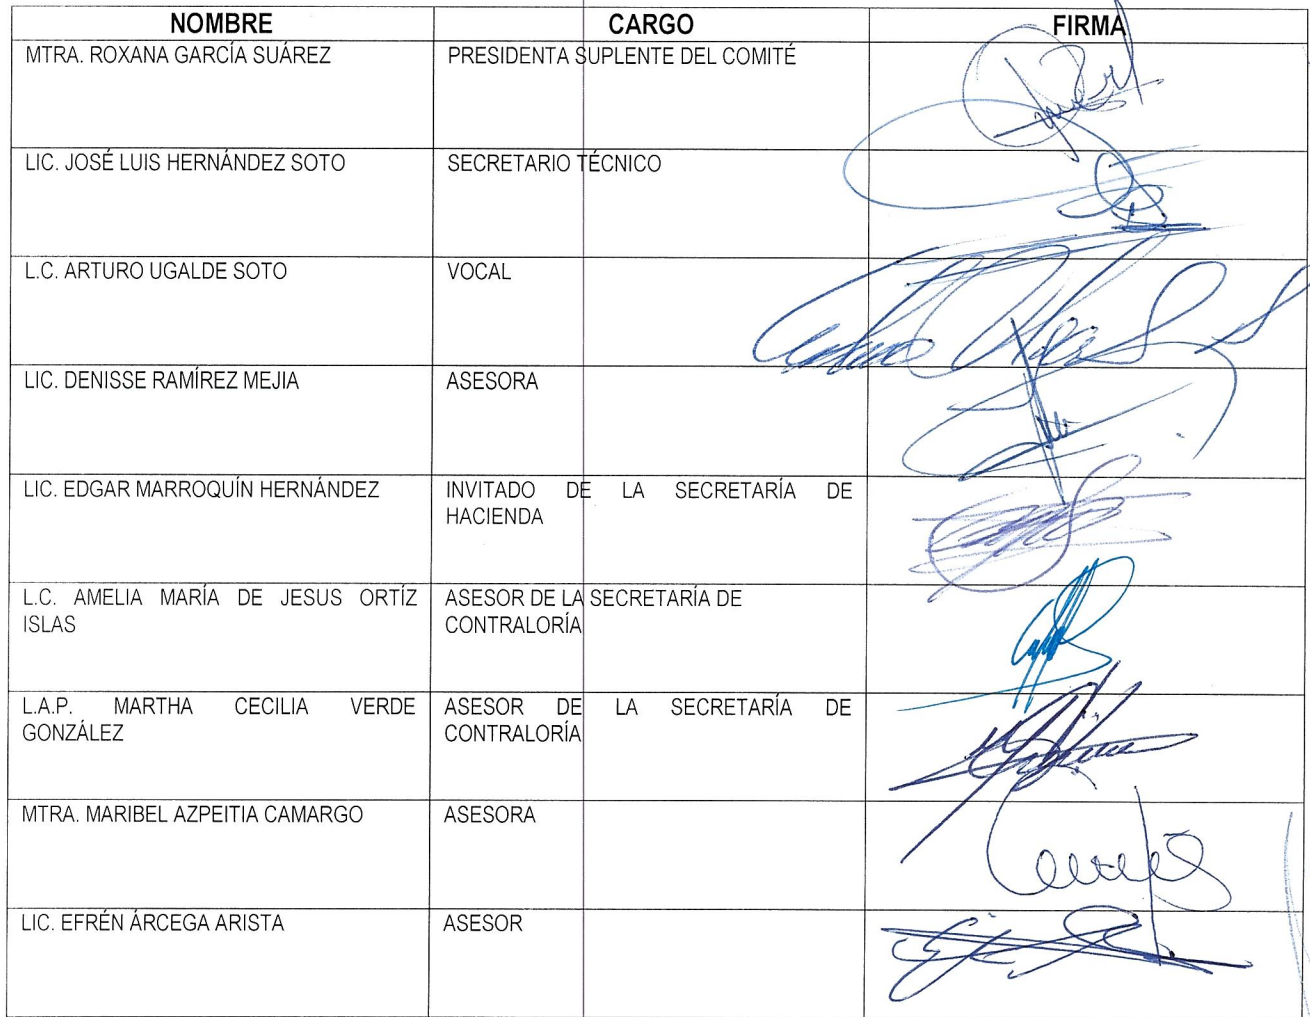 NOMBRE CARGO FIRMA
MTRA. ROXANA GARCÍA SUÁREZ PRESIDENTA SUPLENTE DEL COMITÉ
LIC. JOSÉ LUIS HERNÁNDEZ SOTO SECRETARIO TÉCNICO
L.C. ARTURO UGALDE SOTO VOCAL
LIC. DENISSE RAMÍREZ MEJIA ASESORA
LIC. EDGAR MARROQUÍN HERNÁNDEZ INVITADO DE LA SECRETARÍA DE
HACIENDA
L.C. AMELIA MARÍA DE JESUS ORTÍZ ASESOR DE LA SECRETARÍA DE
ISLAS CONTRALORÍA
L.A.P. MARTHA CECILIA VERDE ASESOR DE LA SECRETARÍA DE
GONZÁLEZ CONTRALORÍA
MTRA. MARIBEL AZPEITIA CAMARGO ASESORA
LIC. EFRÉN ÁRCEGA ARISTA ASESOR